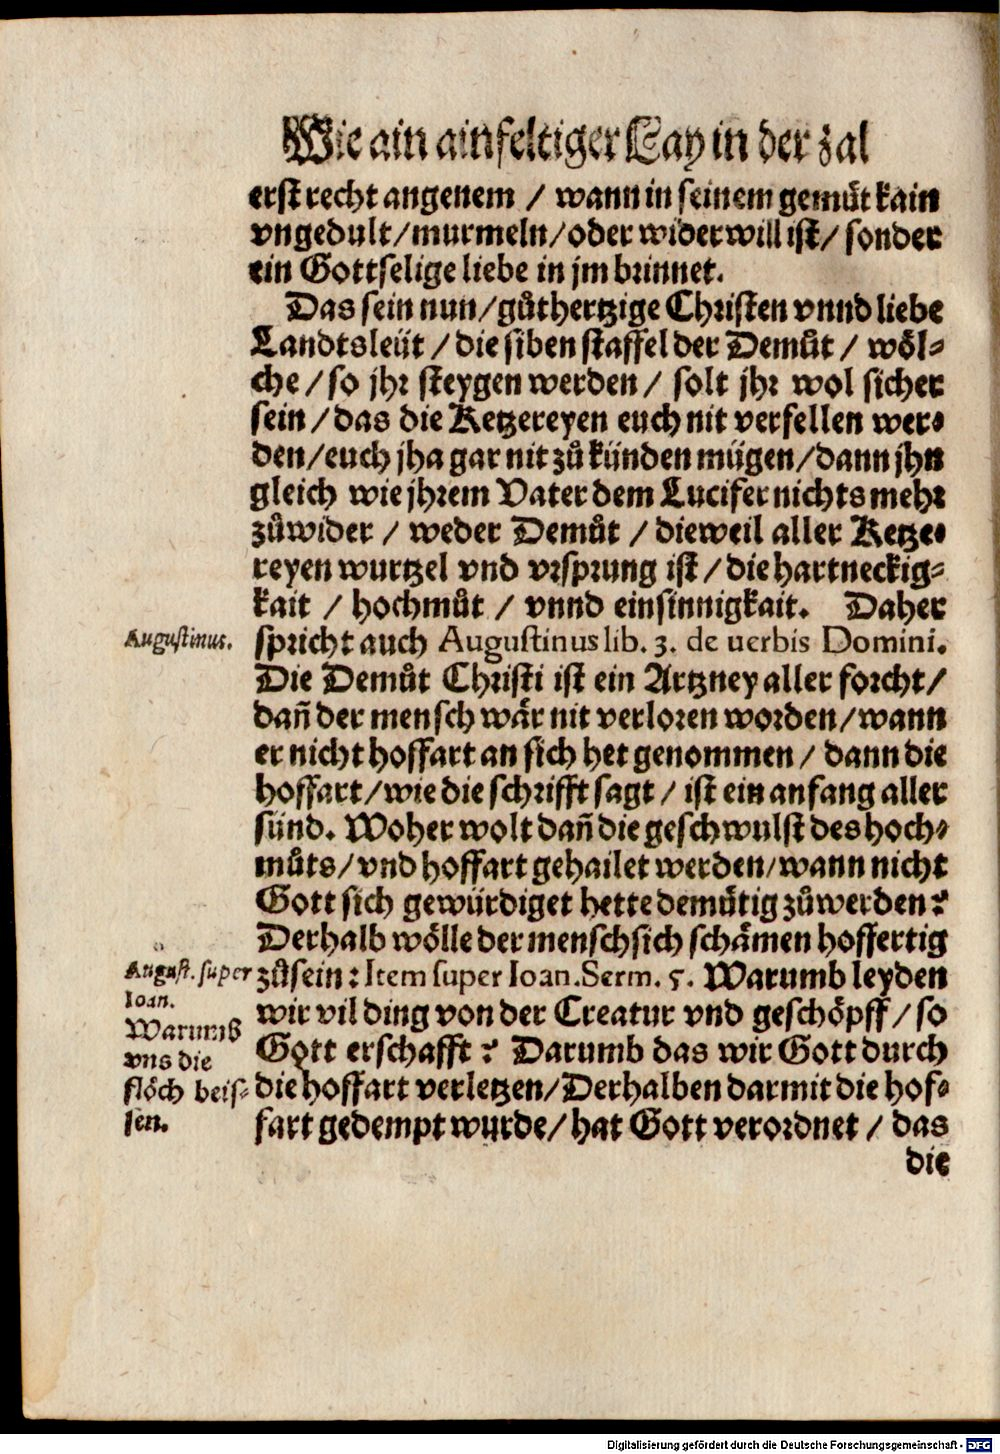 Wie ain ainfeltiger Lay in der zal
erst recht angenem / wann in seinem gemuͤt kain
vngedult/murmeln/oder widerwill ist/ sonder
ein Gottselige liebe in jm brinnet.
Das sein nun/guͦthertzige Christen vnnd liebe
Landtsleüt / die siben staffel der Demuͦt / woͤl-
che / so jhr steygen werden / solt jhr wol sicher
sein / das die Ketzereyen euch nit verfellen wer-
den/euch jha gar nit zuͦ künden mügen/dann jhn
gleich wie jhrem Vater dem Lucifer nichts mehr
zuͦwider / weder Demuͦt / dieweil aller Ketze-
reyen wurtzel vnd vrsprung ist / die hartneckig-
kait / hochmuͦt / vnnd einsinnigkait. Daher
Augustinus.
spricht auch Augustinus lib. 3. de uerbis Domini.
Die Demuͦt Christi ist ein Artzney aller forcht/
dañ der mensch waͤr nit verloren worden/wann
er nicht hoffart an sich het genommen / dann die
hoffart/wie die schrifft sagt / ist ein anfang aller
sünd. Woher wolt dañ die geschwulst des hoch-
muͦts/vnd hoffart gehailet werden/wann nicht
Gott sich gewürdiget hette demuͤtig zuͦwerden?
Derhalb woͤlle der mensch sich schaͤmen hoffertig
August. super
Ioan.
zuͦsein: Item super Ioan. Serm. 5. Warumb leyden
wir vil ding von der Creatur vnd geschoͤpff / so
Warumb
vns die
floͤch beis-
sen.
Gott erschafft? Darumb das wir Gott durch
die hoffart verletzen/Derhalben darmit die hof-
fart gedempt wurde/hat Gott verordnet / das
die
Digitalisierung gefördert durch die Deutsche Forschungsgemeinschaft - DFG